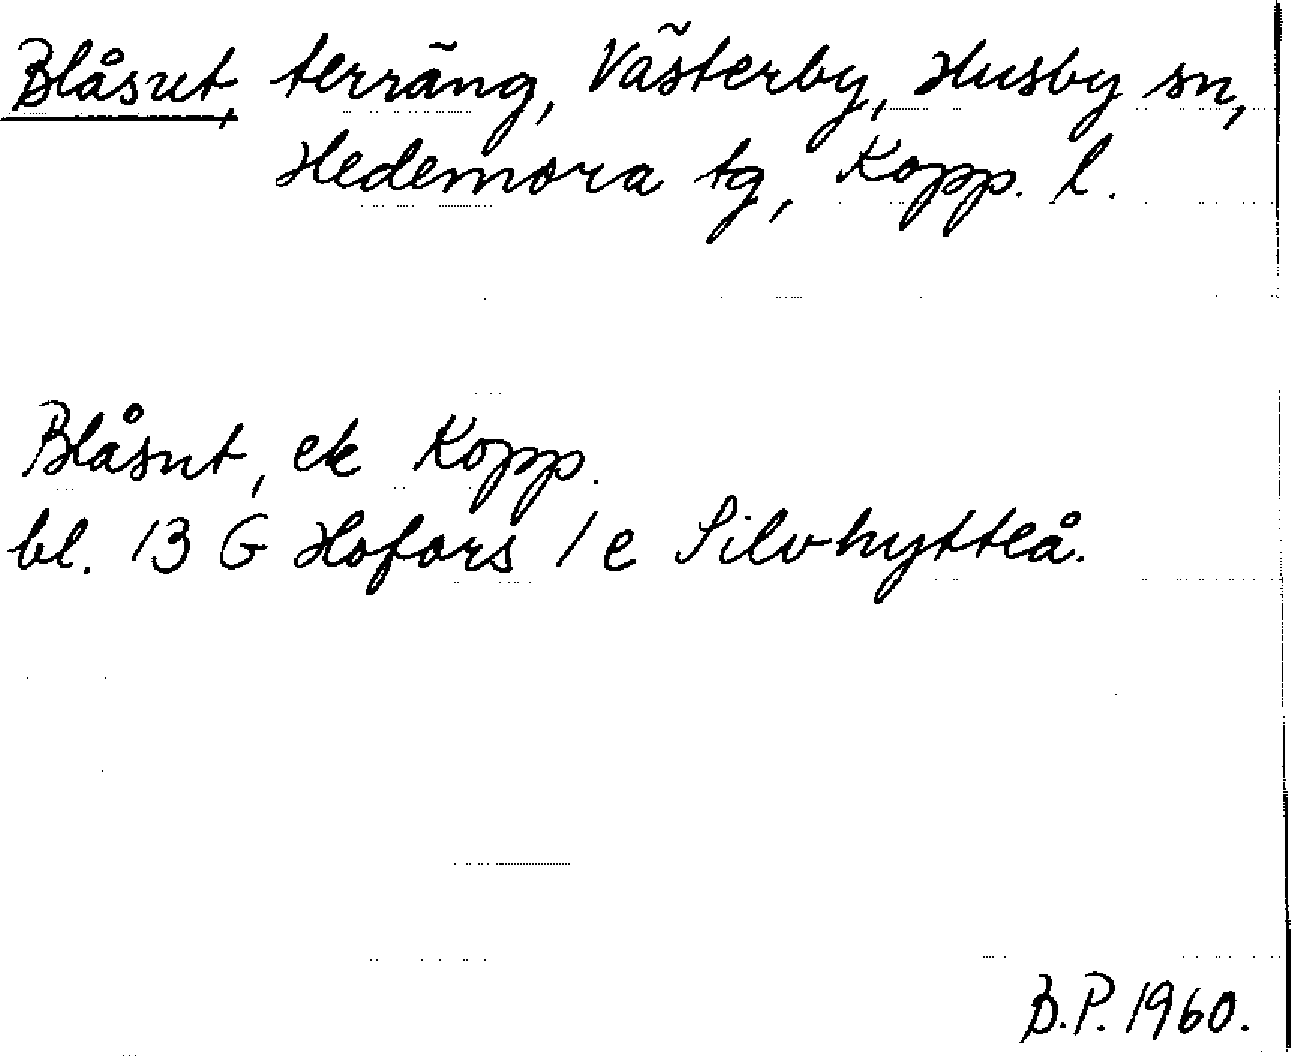 Blåsut, terräng, Västerby, Husby sn,
Hedemora tg, Kopp. l.
Blåsut, ek Kopp.
bl. 13 G Hofors 1 e Silvhytteå.
B.P. 1960.